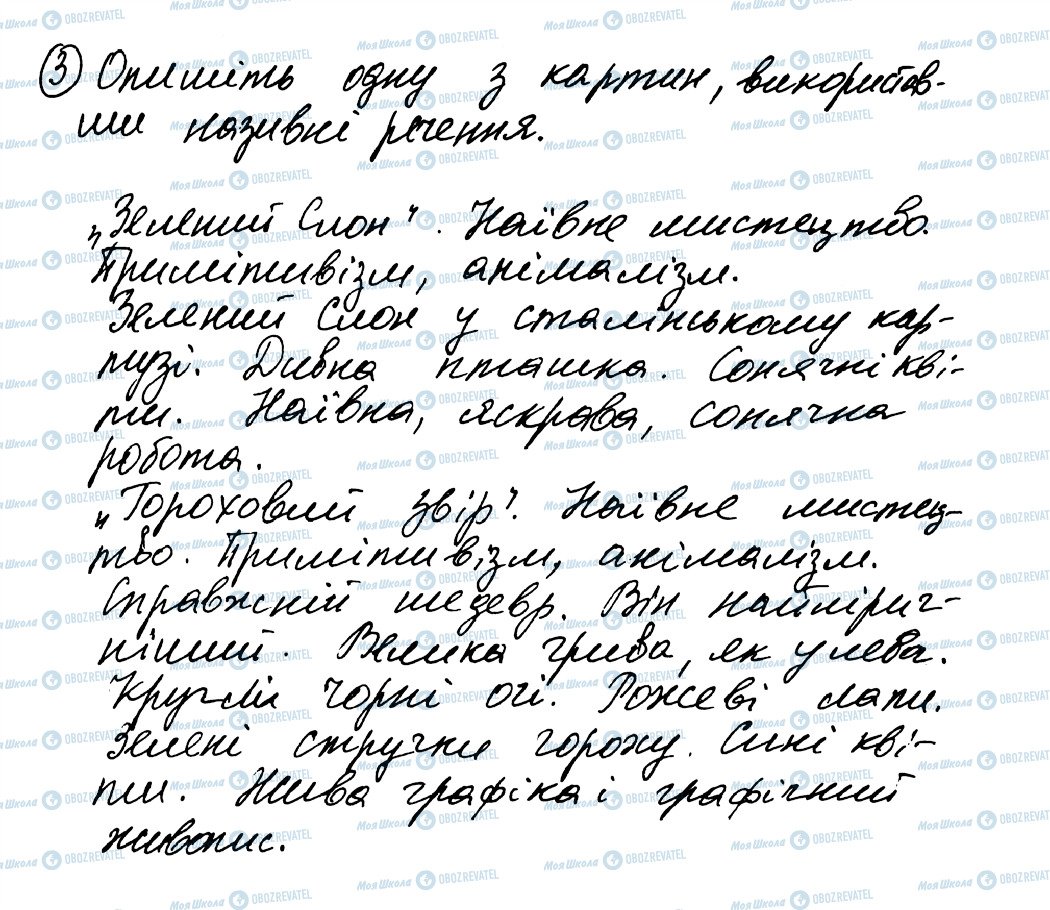 ③ Опишіть одну з картин, використав-
ши називні речення.
„Зелений Слон". Наївне мистецтво.
Примітивізм, анімалізм.
Зелений Слон у сталінському кар-
тузі. Дивна пташка. Сонячні кві-
ти. Наївна, яскрава, сонячна
робота.
„Гороховий звір". Наївне мистец-
тво. Примітивізм, анімалізм.
Справжній шедевр. Він найліричі-
ніший. Велика грива, як у лева.
Круглі чорні очі. Рожеві лапи.
Зелені стручки гороху. Сині кві-
ти. Жива графіка і графічний
живопис.